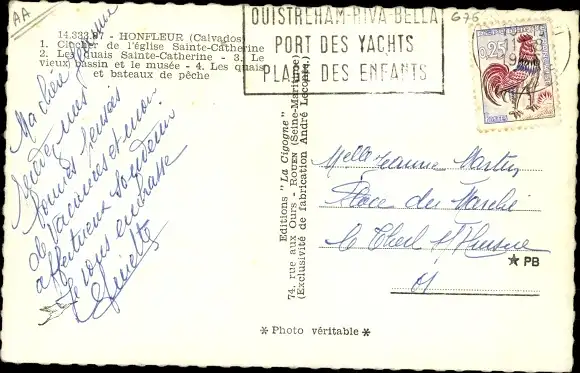 AA
14.333.97 - HONFLEUR (Calvados)
1. Clocher de l'église Sainte-Catherine
2. Les quais Sainte-Catherine - 3. Le
vieux bassin et le musée - 4. Les quais
et bateaux de pêche
OUISTREHAM-RIVA-BELLA
PORT DES YACHTS
PLAGE DES ENFANTS
676
0,25
Ma chère Jeanne
de vacances et mon
affectueux souvenir
Je vous embrasse
Ginette
Editions "La Cigogne"
74, rue aux Ours - ROUEN (Seine-Maritime)
(Exclusivité de fabrication André Leconte)
Melle Jeanne Martin
Place du Marché
le Theil s/Huisne
★ PB
* Photo véritable *